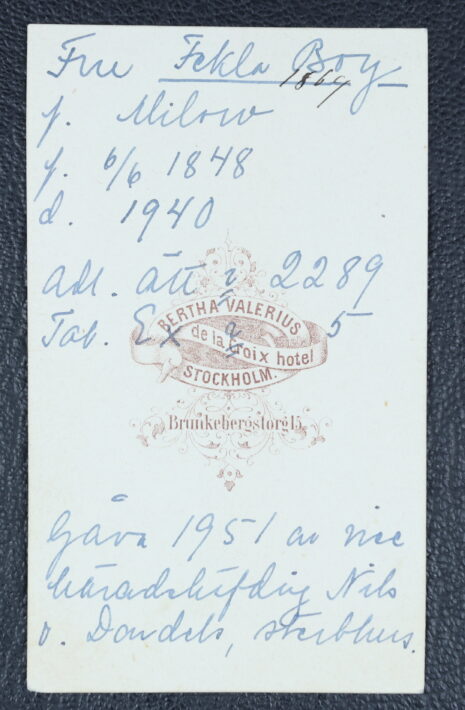 Fru Tekla Boy
1869
f. Milow
f. 6/6 1848
d. 1940
adl. ätt 2289
Tab. 5
BERTHA VALERIUS
de la Croix hotel
STOCKHOLM.
Brunkebergstorg 15.
Gåva 1951 av vice
häradshöfding Nils
v. Dardels, sterbhus.